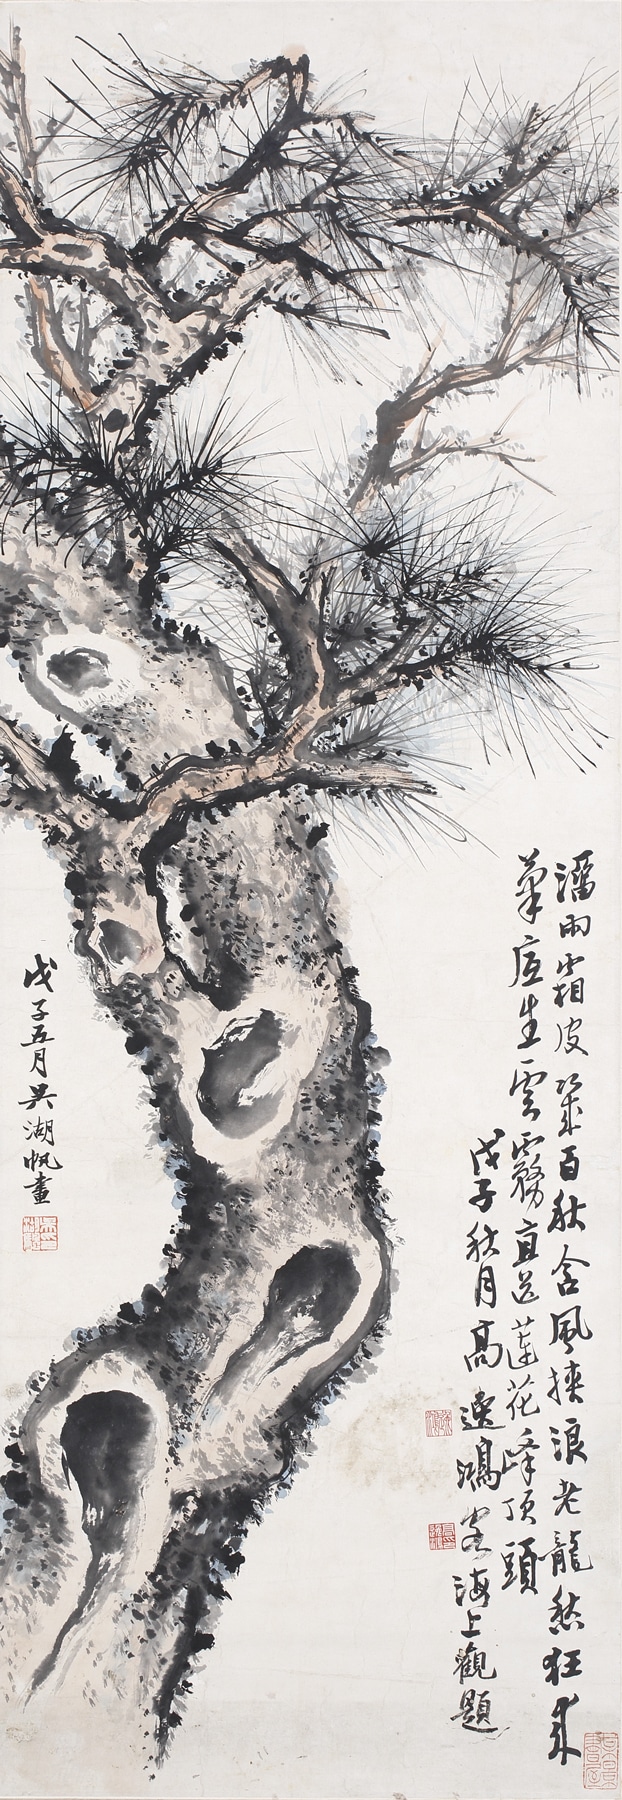 溜雨霜皮歷百秋含風挾浪老龍愁狂來
筆底生雲霧直送蓮花峰頂頭
戊子秋月高逸鴻客海上觀題
戊子五月吳湖帆畫